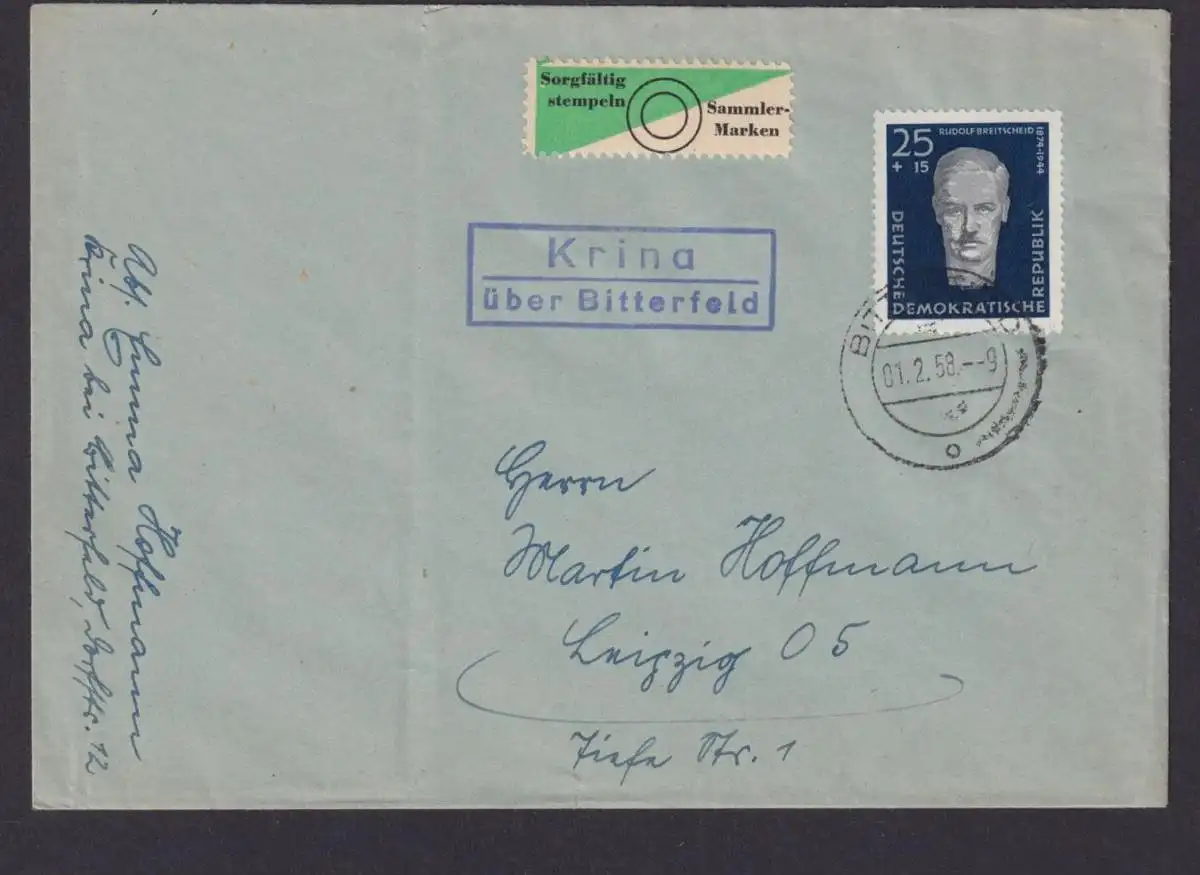 Sorgfältig
stempeln
Sammler-
Marken
25
+ 15
RUDOLF BREITSCHEID
1874-1944
DEUTSCHE
DEMOKRATISCHE
REPUBLIK
Krina
über Bitterfeld
01.2.58.--9
Herrn
Martin Hoffmann
Leipzig O 5
Tiefe Str. 1
Abs. Hoffmann
Krina bei Bitterfeld, Dorfstr. 12